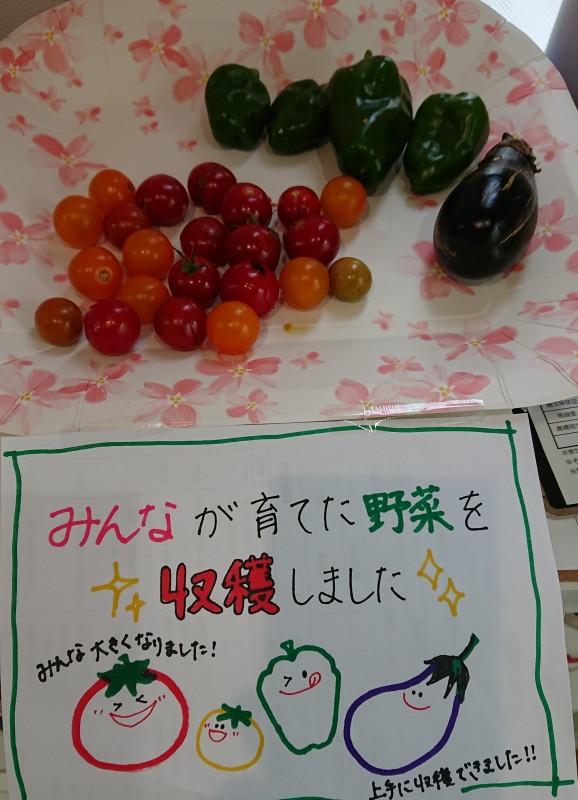 みんなが育てた野菜を
収穫しました
みんな大きくなりました!
上手に収穫できました!!